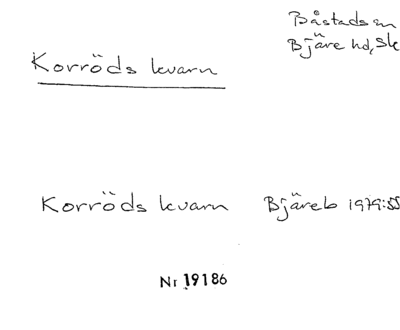 Båstads sn
Bjäre hd, Sk
Korröds kvarn
Korröds kvarn Bjäreb 1979:55
Nr 19186